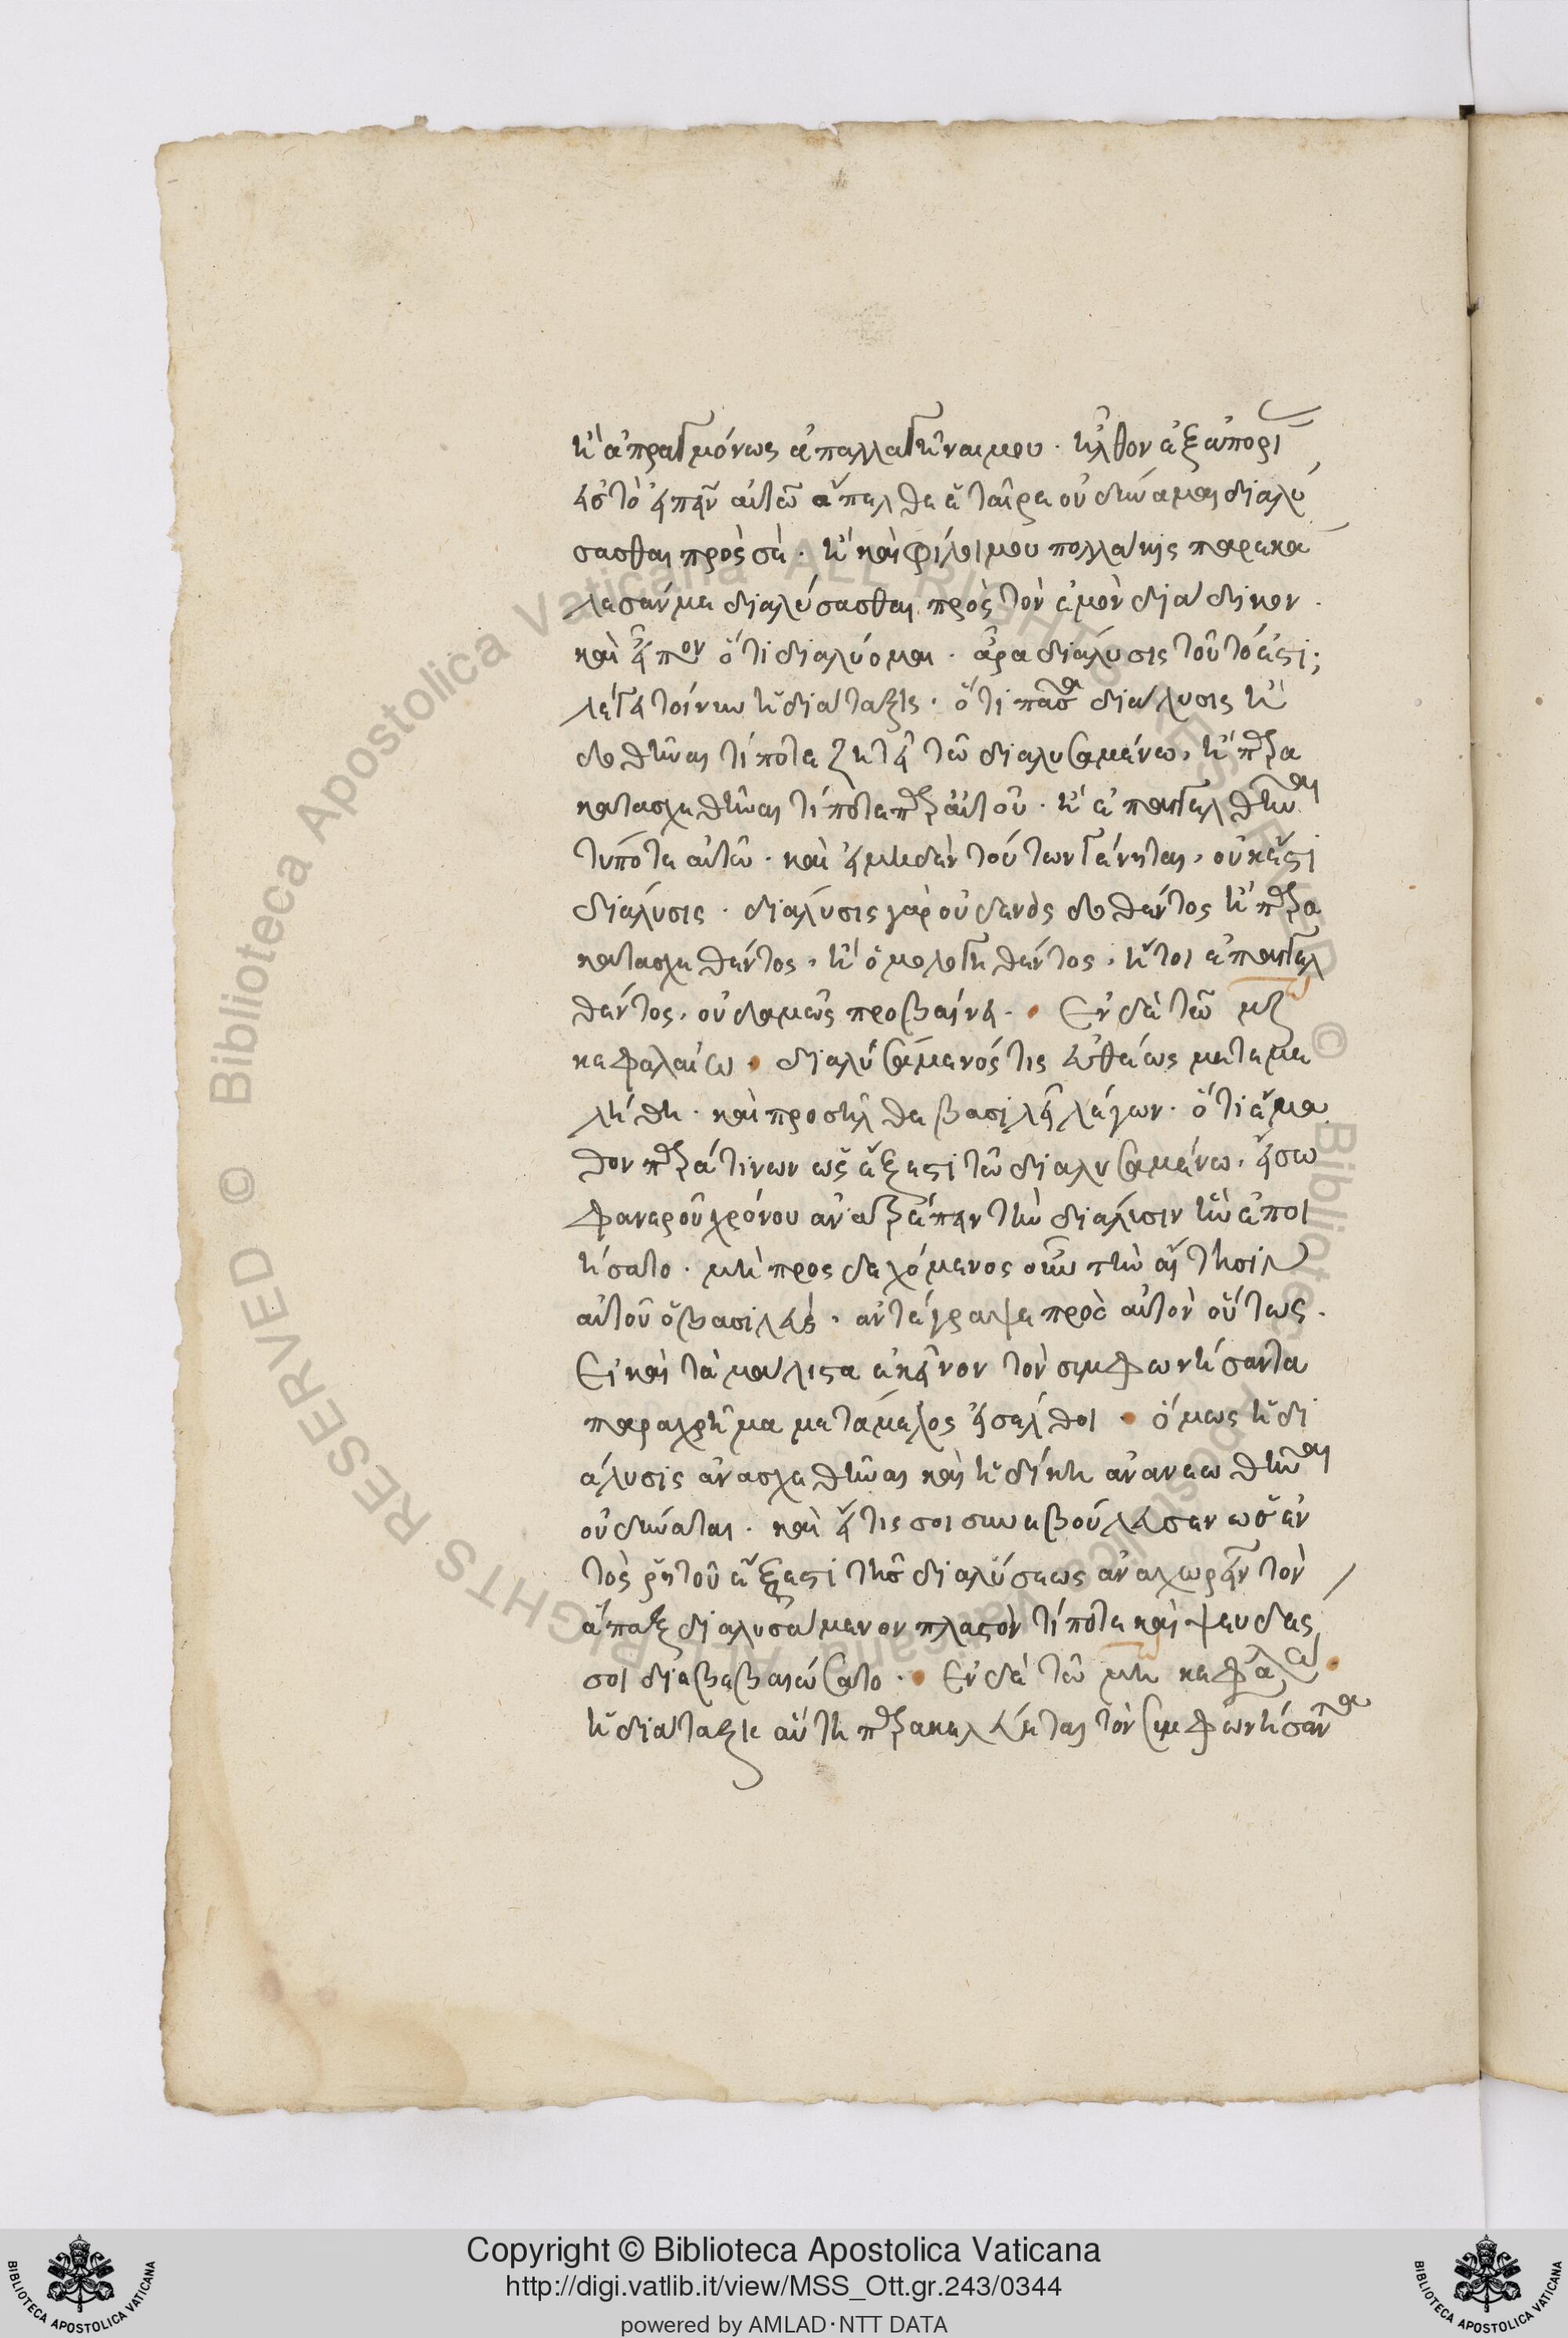 ἢ ἀπραγμόνως ἀπαλλαγῆναι μου· ἦλθον ἐξ ἀπορί
εἰς τὸ εἰπεῖν αὐτῶ ἄπελθε ἑταῖρε οὐ δύναμαι διαλύ
σασθαι πρὸς σέ· ἢ καὶ φίλοι μου πολλάκις παρεκά
λεσάν με διαλύσασθαι πρὸς τὸν ἐμὸν διάδικον·
καὶ εἶπον ὅτι διαλύομαι· ἆρα διάλυσις τοῦτό ἐστι;
λέγει τοίνυν ἡ διάταξις· ὅτι πᾶσα διάλυσις ἢ
δοθῆναι τίποτε ζητεῖ τῶ διαλυσαμένω, ἢ παρα
κατασχεθῆναι τίποτε παρ' αὐτοῦ· ἢ ἐπαγγελθῆναι
τίποτε αὐτῶ· καὶ εἰ μηδὲν τούτων γένηται, οὐκ ἔστι
διάλυσις· διάλυσις γὰρ οὐδενὸς δοθέντος ἢ παρα
κατασχεθέντος, ἢ ὁμολογηθέντος, ἤτοι ἐπαγγελ
θέντος, οὐδαμῶς προβαίνει· Ἐν δὲ τῶ μζ
κεφαλαίω· διαλυσάμενός τις εὐθέως μετεμε
λήθη· καὶ προσῆλθε βασιλεῖ λέγων· ὅτι ἔμα
θον παρά τινων ὡς ἔξεστι τῶ διαλυσαμένω, εἴσω
φανεροῦ χρόνου ἀνατρέπειν τὴν διάλυσιν ἣν ἐποι
ήσατο· μὴ προσδεχόμενος οὖν τὴν αἴτησιν
αὐτοῦ ὁ βασιλεὺς, ἀντέγραψε πρὸς αὐτὸν οὕτως·
Εἰ καὶ τὰ μάλιστα ἐκεῖνον τὸν συμφωνήσαντα
παραχρῆμα μετάμελος εἰσέλθοι· ὅμως ἡ δι
άλυσις ἀνασχεθῆναι καὶ ἡ δίκη ἀνανεωθῆναι
οὐ δύναται· καὶ εἴ τις σοι συνεβούλευσεν ὡς ἐν
τὸς ῥητοῦ ἔξεστι τῆς διαλύσεως ἀναχωρεῖν τὸν
ἅπαξ διαλυσάμενον πλαστὸν τίποτε καὶ ψευδές
σοι διεβεβαιώσατο· Ἐν δὲ τῶ μη κεφαλαίω·
ἡ διάταξις αὕτη παρακελεύεται τὸν συμφωνήσαντα